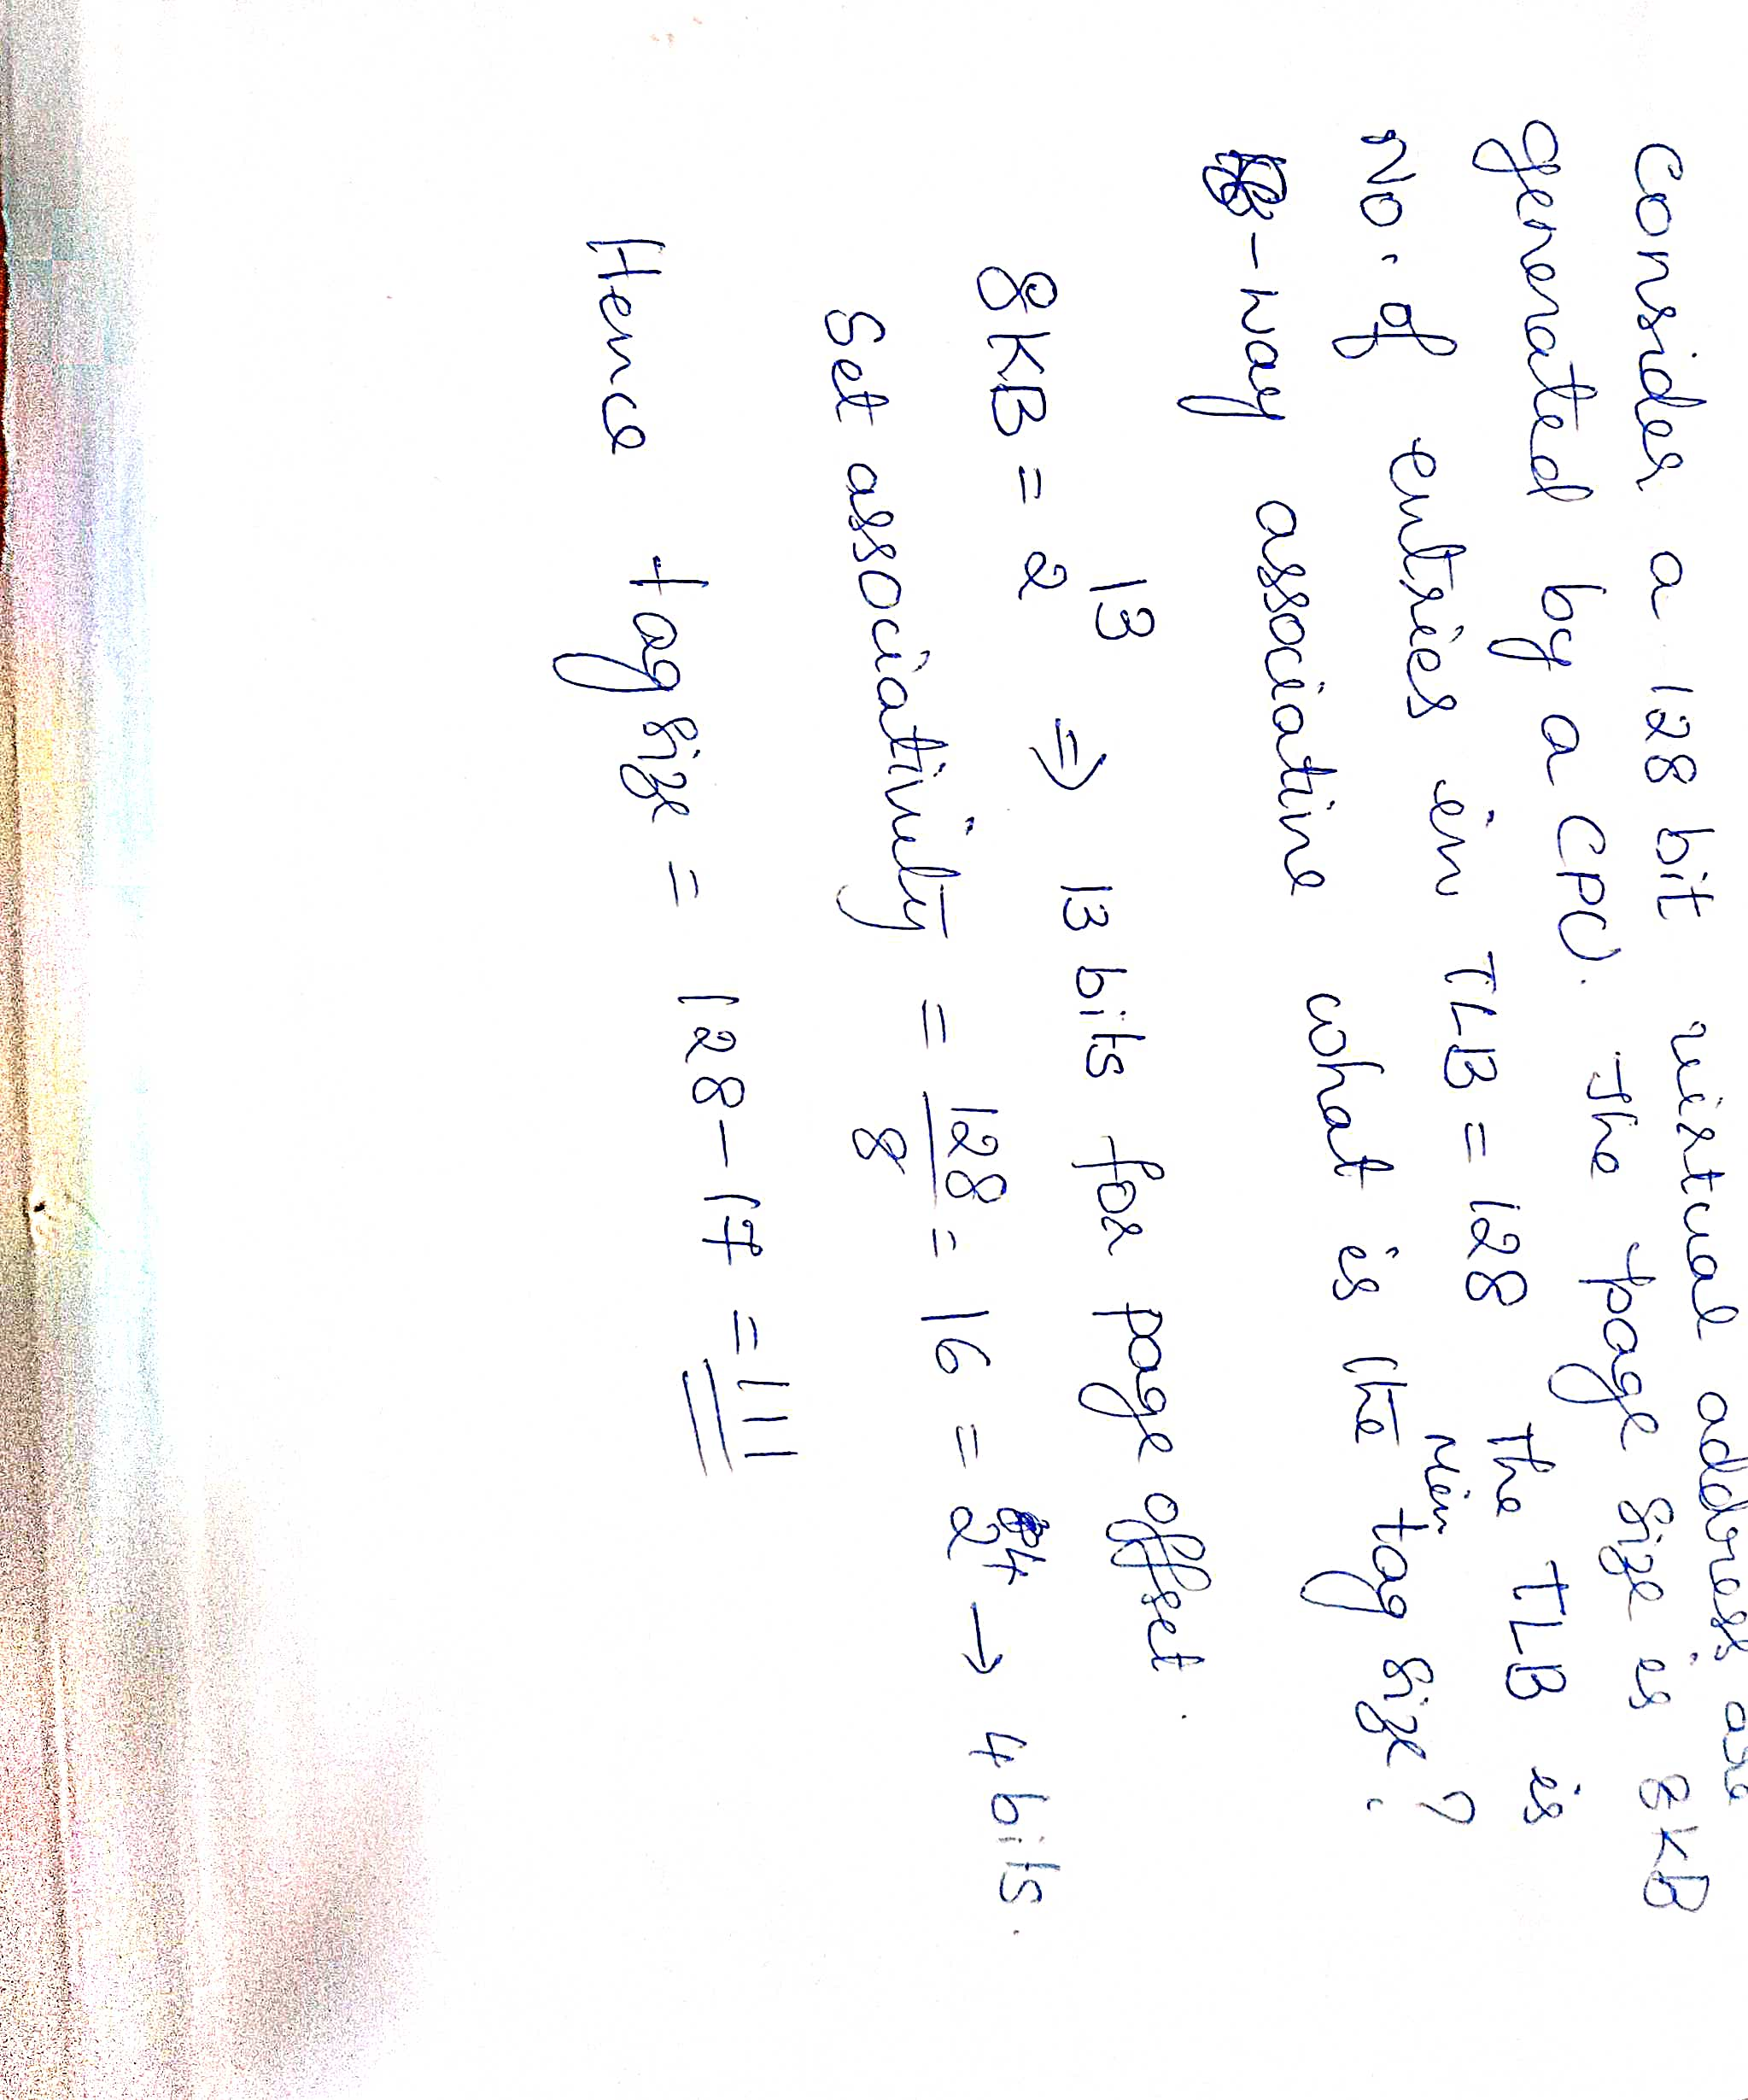 Consider a 128 bit virtual address are
generated by a CPU. The page size is 8KB
No. of entries in TLB = 128 The TLB is
8-way associative what is the min tag size?
8KB = 2^13 ⇒ 13 bits for page offset.
Set associativity = 128/8 = 16 = 2^4 → 4 bits.
Hence tag size = 128 - 17 = 111